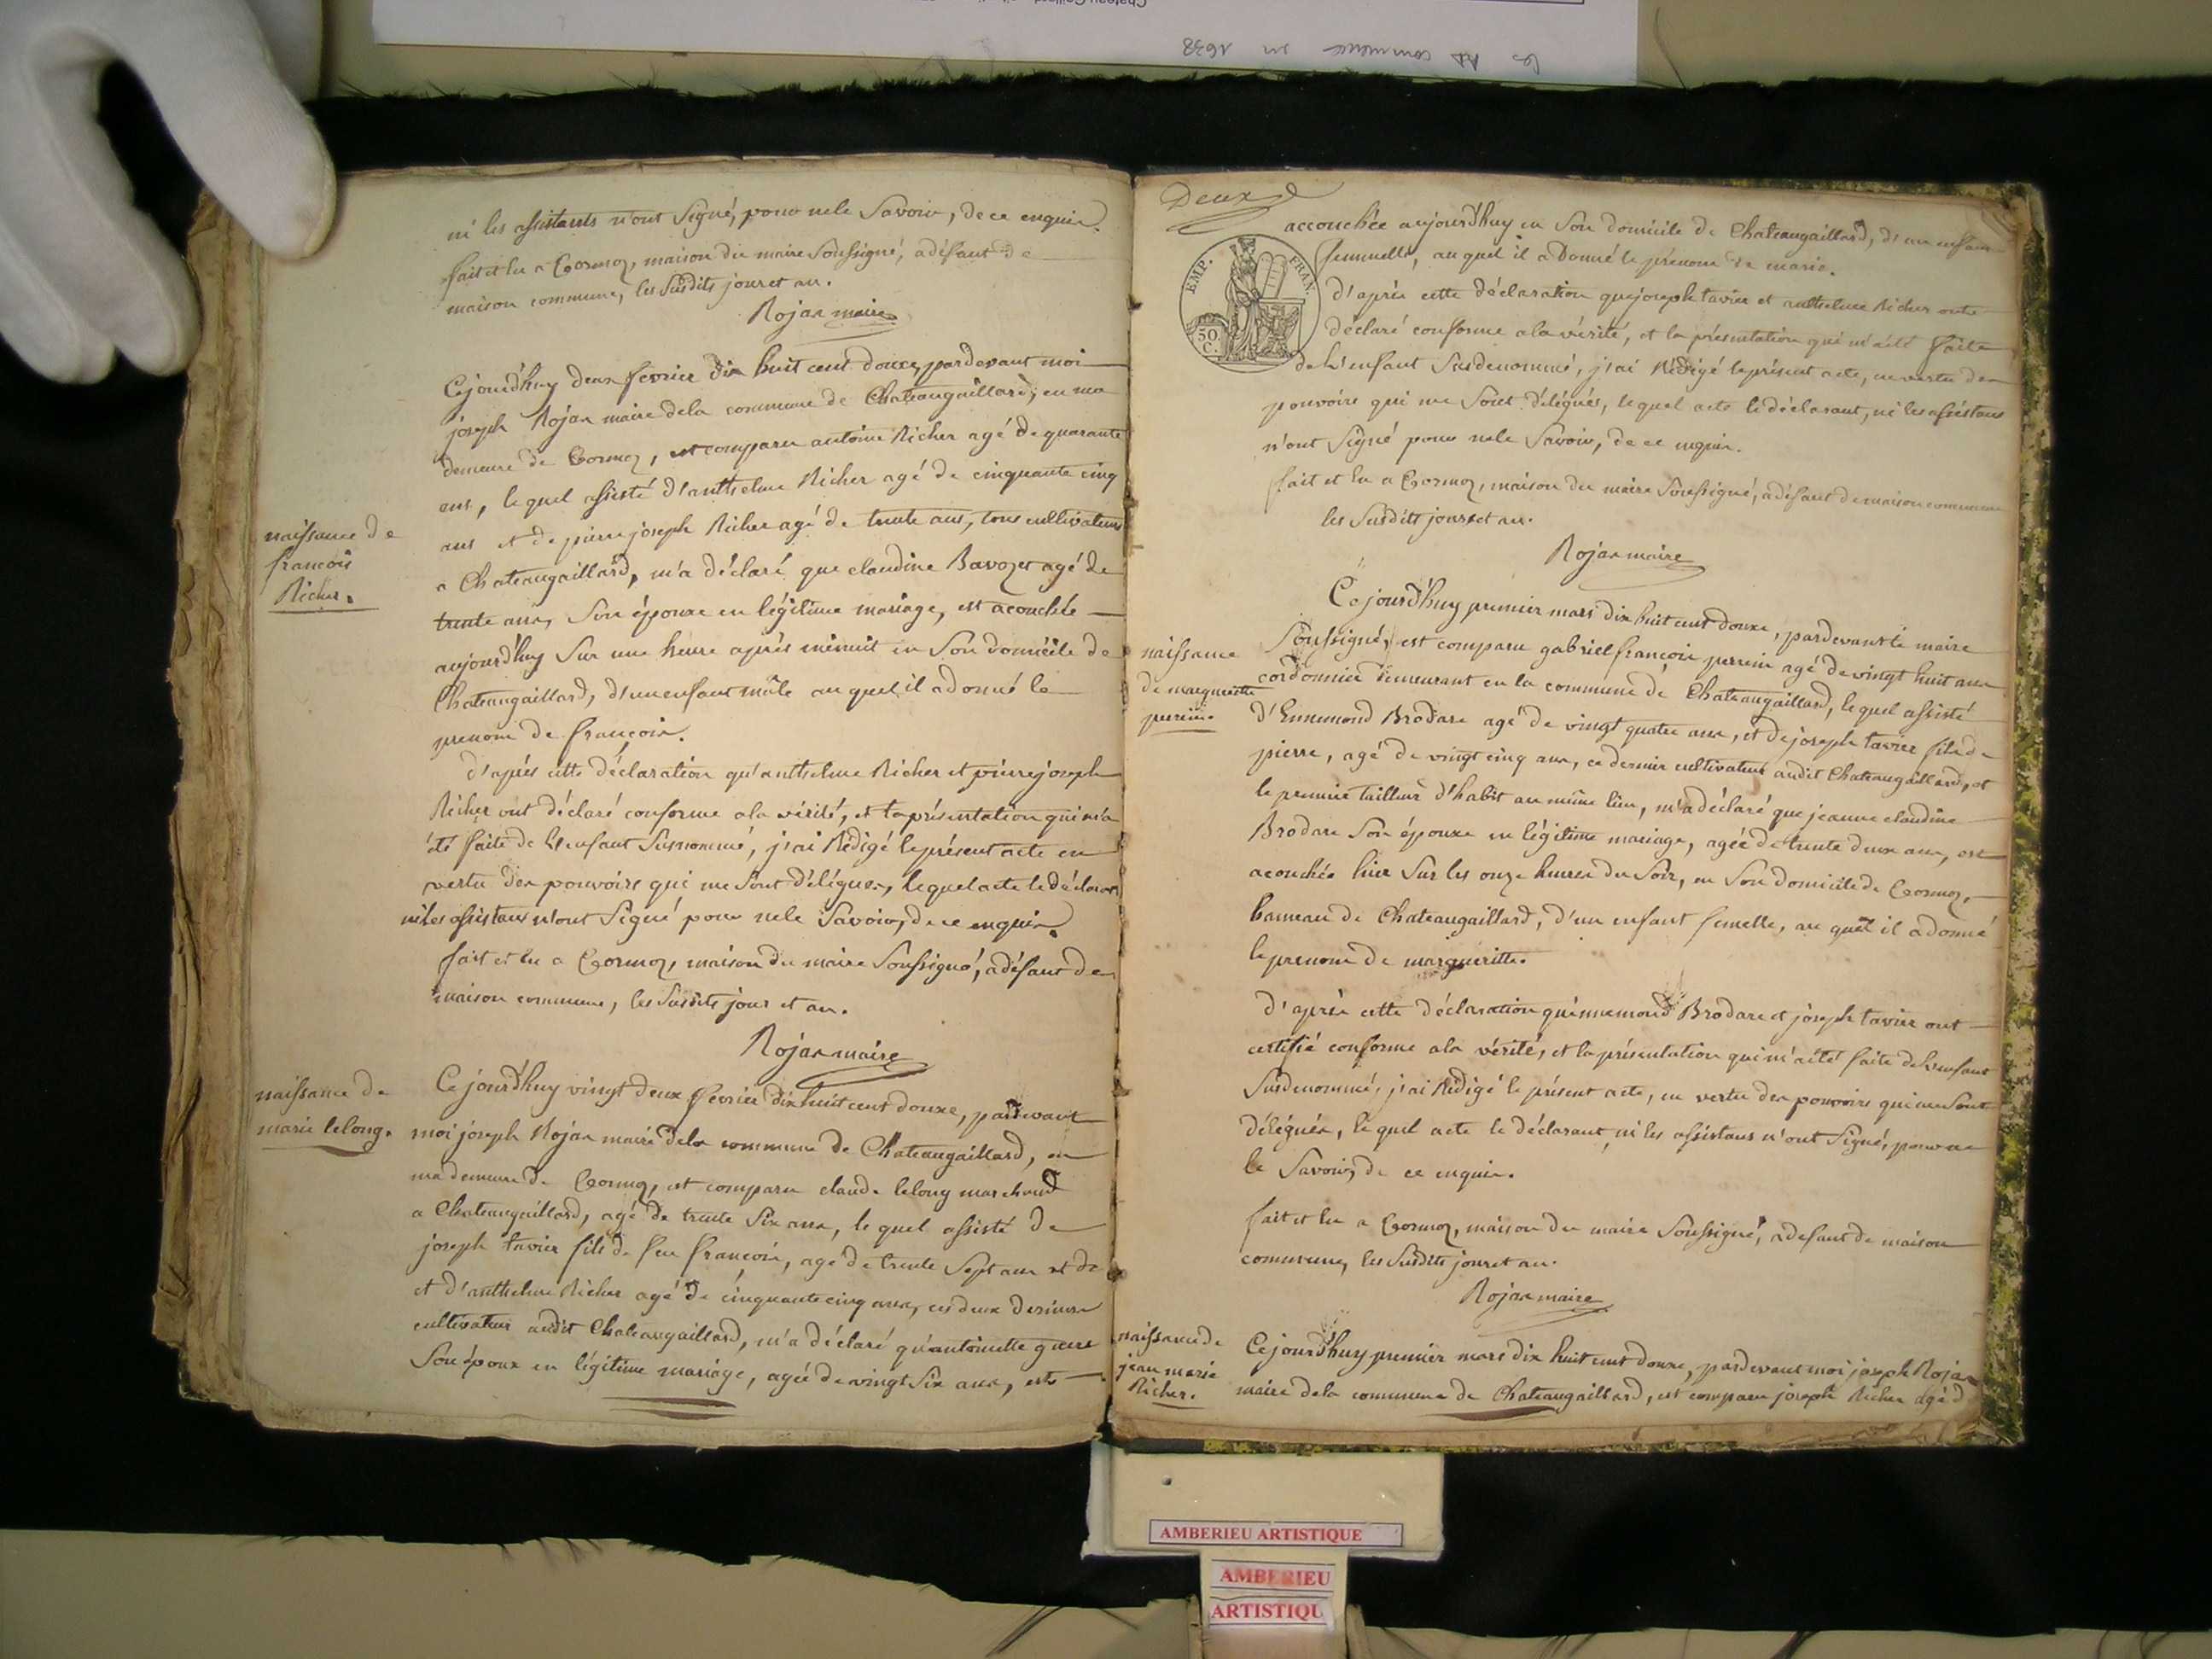 les AD commence en 1638
ni les assistants n'ont Signé, pour nele Savoir, de ce enquis.
fait et lu a Cormoz, maison du maire Soussigné, a défaut de
maison commune, les Susdits jour et an.
Rojan maire
naissance de
francois
Richer.
Cejourd'huy deux fevrier dix huit cent douze, pardevant moi
joseph Rojan maire dela commune de Chateaugaillard, en ma
demeure de Cormoz, est comparu antoine Richer agé de quarante
ans, lequel assisté d'anthelme Richer agé de cinquante cinq
ans et de pierre joseph Richer agé de trente ans, tous cultivateurs
a Chateaugaillard, m'a déclaré que claudine Bavozet agé de
trente ans, Son épouse en légitime mariage, est acouchée
aujourd'huy Sur une heure après minuit en Son domicile de
Chateaugaillard, d'un enfant mâle au quel il a donné le
prenom de françois.
d'après cette déclaration qu'anthelme Richer et pierre joseph
Richer ont déclaré conforme ala vérité, et la présentation qui m'a
été faite de l'enfant Susnommé, j'ai Rédigé le présent acte en
vertu des pouvoirs qui me Sont délégués, lequel acte le déclarant
ni les assistans n'ont Signé pour nele Savoir, de ce enquis.
fait et lu a Cormoz, maison du maire Soussigné, a défaut de
maison commune, les Susdits jour et an.
Rojan maire
naissance de
marie lelong.
Ce jourd'huy vingt deux fevrier dix huit cent douze, pardevant
moi joseph Rojan maire dela commune de Chateaugaillard, en
ma demeure de Cormoz, est comparu claude lelong marchand
a Chateaugaillard, agé de trente Six ans, le quel assisté de
joseph tavier fils de feu françois, agé de trente Sept ans et de
et d'anthelme Richer agé de cinquante cinq ans, ces deux derniers
cultivateurs audit Chateaugaillard, m'a déclaré qu'antoinette
Son épouse en légitime mariage, agée de vingt Six ans, est
Deux
EMP. FRAN.
50
C.
accouchée aujourd'huy en Son domicile de Chateaugaillard, d'un enfant
femmelle, au quel il a Donné le prénom de marie.
d'après cette déclaration que joseph tavier et anthelme Richer ont
déclaré conforme ala vérité, et la présentation qui m'a été faite
de L'enfant Susdenommé, j'ai Rédigé le présent acte, en vertu des
pouvoirs qui me Sont délégués, lequel acte le déclarant, ni les assistans
n'ont Signé pour nele Savoir, de ce enquis.
fait et lu a Cormoz, maison du maire Soussigné, a défaut de maison commune
les Susdits jour et an.
Rojan maire
naissance
de margueritte
perrin.
Cejourd'huy premier mars dix huit cent douze, pardevant le maire
Soussigné, est comparu gabriel françois perrin agé de vingt huit ans
cordonnier demeurant en la commune de Chateaugaillard, lequel assisté
d'Ennemond Brodare agé de vingt quatre ans, et de joseph tavier fils de
pierre, agé de vingt cinq ans, ce dernier cultivateur audit Chateaugaillard, et
le premier tailleur d'habit au même lieu, m'a déclaré que jeanne claudine
Brodare Son épouse en légitime mariage, agée de trente deux ans, est
acouchée hier Sur les onze heures du Soir, en Son domicile de Cormoz,
hameau de Chateaugaillard, d'un enfant femelle, au quel il a donné
le prenom de margueritte.
d'après cette déclaration qu'ennemond Brodare et joseph tavier ont
certifié conforme ala vérité, et la présentation qui m'a été faite de L'enfant
Susdenommé, j'ai Rédigé le présent acte, en vertu des pouvoirs qui me Sont
délégués, le quel acte le déclarant, ni les assistans n'ont Signé, pour ne
le Savoir, de ce enquis.
fait et lu a Cormoz, maison du maire Soussigné, a defaut de maison
commune, les Susdits jour et an.
Rojan maire
naissance de
jean marie
Richer.
Cejourd'huy premier mars dix huit cent douze, pardevant moi joseph Rojan
maire dela commune de Chateaugaillard, est comparu joseph Richer agé d
AMBERIEU ARTISTIQUE
AMBERIEU
ARTISTIQU